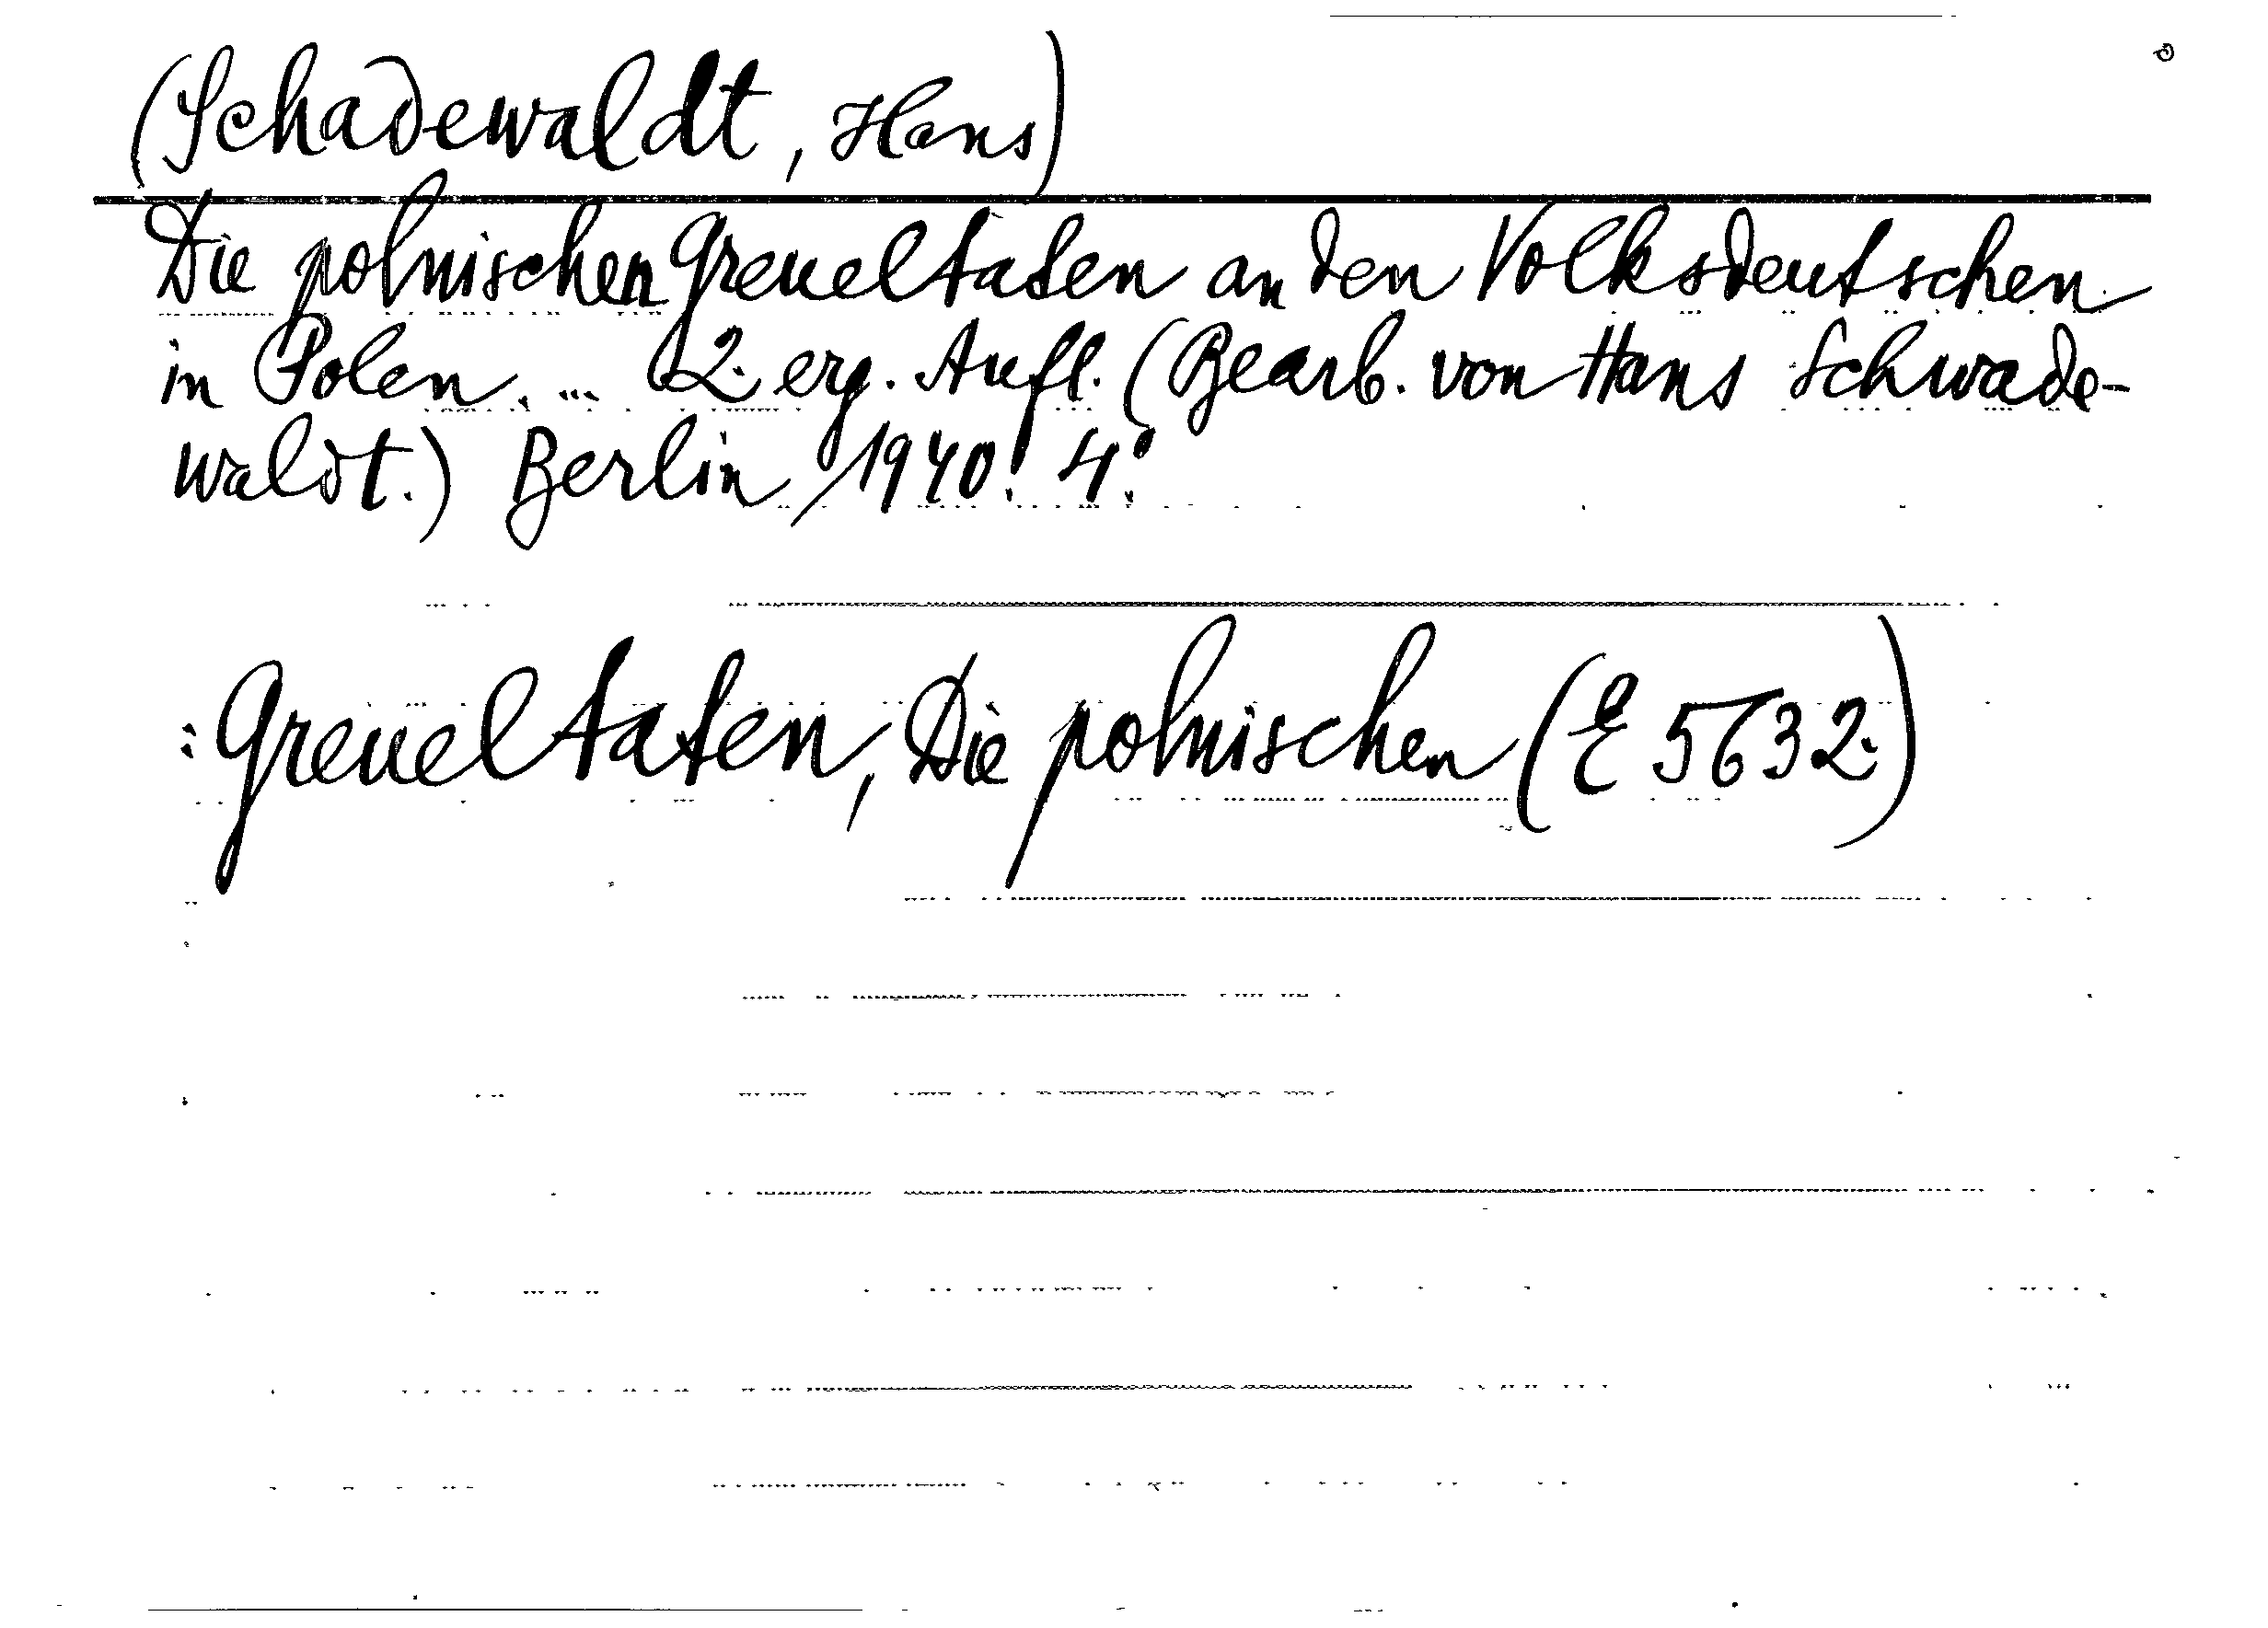 (Schadewaldt, Hans)
Die polnischen Greueltaten an den Volksdeutschen
in Polen. ... 2. erg. Aufl. (Bearb. von Hans Schwade-
waldt.) Berlin, 1940. 4°.
: Greueltaten, Die polnischen (E 5632)